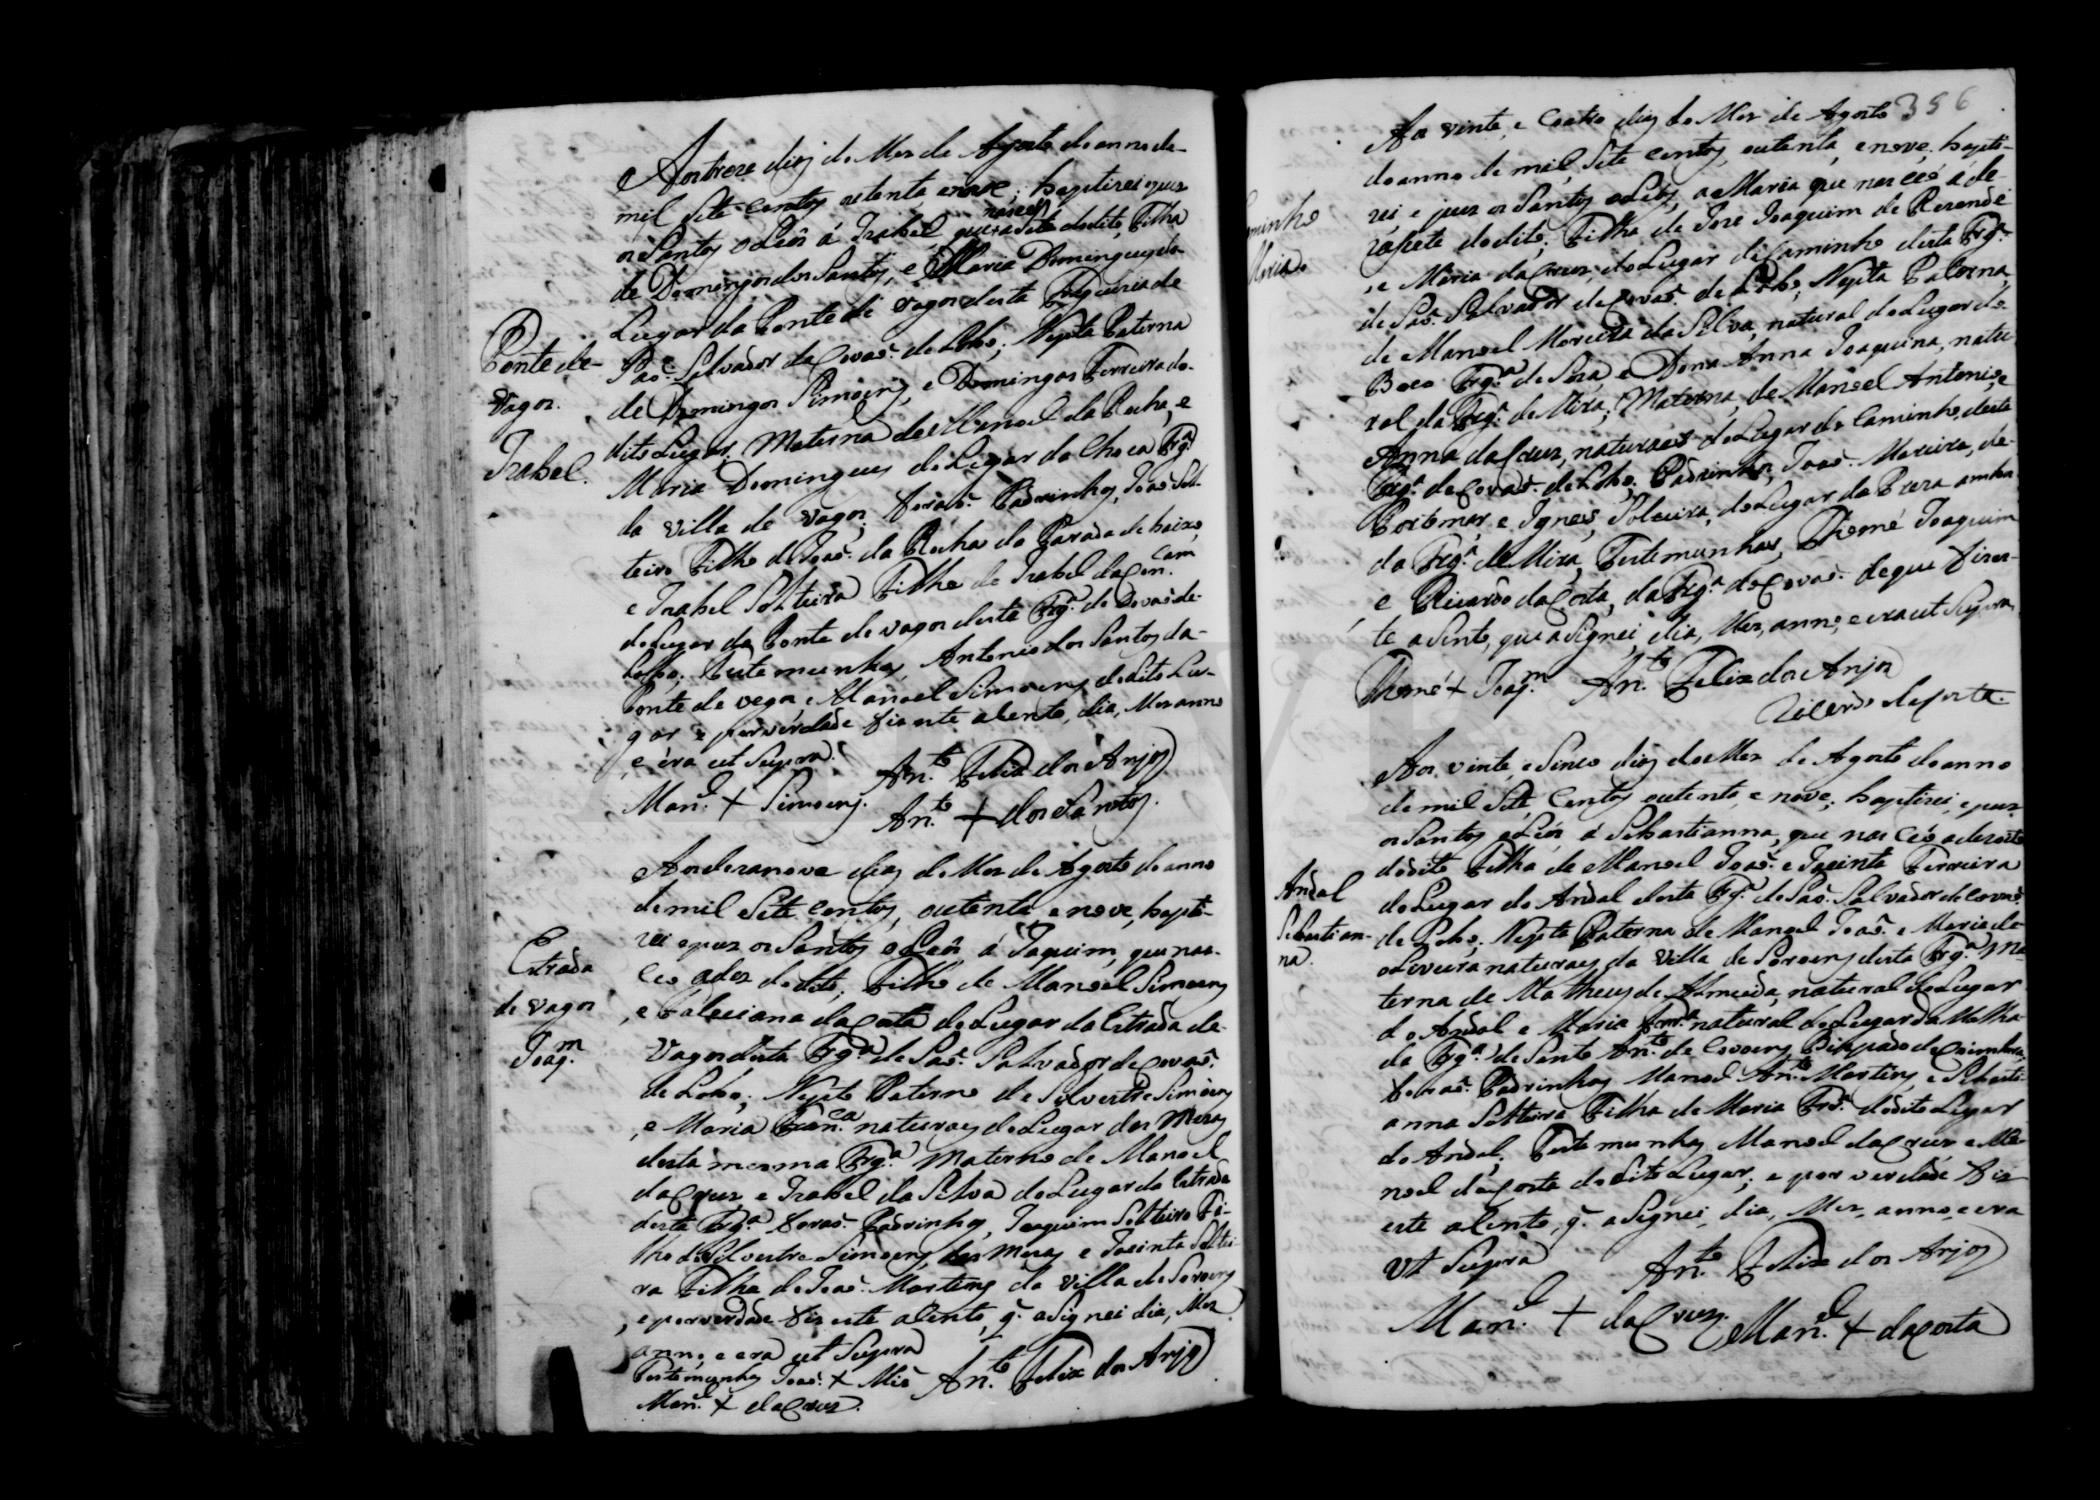 Aos treze dias do Mes de Agosto do anno de-
mil sete centos outenta enove; baptizei epuz
os Santos oLeos á Izabel, que nasceo a sete dodito, Filha
de Domingos dos Santos, e Maria Domingues do-
Lugar da Ponte de Vagos desta Freguezia de
Ponte de-
Vagos.
Izabel.
Saõ Salvador da Covaõ de Lobo; Nepta Paterna
de Domingos Simoens, e Domingas Ferreira do-
dito Lugar; Materna de Manoel da Rocha, e
Maria Domingues do Lugar da Choca Frg.ª
da Villa de Vagos; foraõ Padrinhos, Joaõ Sol-
teiro Filho de Joaõ da Rocha da Parada de baixo,
e Izabel Solteira Filha de Izabel da
do Lugar da Ponte de Vagos desta Frg.ª de Covaõ de-
Lobo; Testemunhas, Antonio dos Santos da-
Ponte de Vagos, e Manoel Simoens do dito Lu-
gar e por verdade fis este acento, dia, Mes anno
e éra ut Supra.
An.to Felix dos Anjos
Man.l + Simoens.
An.to + dos Santos.
Aos dezanove dias do Mes de Agosto do anno
de mil Sete Centos, outenta, e nove, bapti-
zei epuz os Santos oLeos á Joaquim, que nas-
Estrada
de Vagos
Joaq.m
ceo ades do dito; Filho de Manoel Simoens
, e da Costa do Lugar da Estrada de-
Vagos desta Frg.ª de Saõ Salvador de Covaõ
de Lobo; Nepto Paterno de Silvestre Simoens
, e Maria Fran.ca naturaes do Lugar das Mesas
desta mesma Frg.ª Materno de Manoel
da Cruz e Izabel da Silva do Lugar da Estrada
desta Frg.ª foraõ Padrinhos, Joaquim Solteiro Fi-
lho de Silvestre Simoens, das Mesas e Jacinta Soltei
ra Filha de Joaõ Martins da Villa de Soroens
, e por verdade fis este acento, q̃ asignei dia, Mes
anno, e era ut Supra
Testemunhas Joaõ + An.to Felix dos Anjos
Man.l + da Cruz.
356
Aos vinte, e Coatro dias do Mes de Agosto
do anno de mil, Sete centos, outenta, e nove, bapti-
zei e puz os Santos oLeos, a Maria que nasceo á de-
Caminho
Maria.
zasete do dito; Filha de Joze Joaquim de Rezende
, e Maria da Cruz, do Lugar do Caminho desta Frg.ª
de Saõ Salvador de Covaõ de Lobo; Nepta Paterna,
de Manoel Moreira da Silva, natural do Lugar do-
Boco Frg.ª de Soza, e Dona Anna Joaquina, natu
ral da Frg.ª de Mira; Materna, de Manoel Antonio, e
Anna da Cruz, naturaes do Lugar do Caminho, desta
Frg.ª de Covaõ de Lobo; Padrinhos, Joaõ Moreira, de-
Portomar, e Ignes, do Lugar da Preza ambos
da Frg.ª de Mira, Testemunhas, Thomé Joaquim
e Ricardo da Costa, da Frg.ª de Covaõ deque fis es-
te aSento, que aSignei, dia, Mes, anno, e era ut Supra.
Thomé + Joaq.m An.to Felix dos Anjos
Ricardo da Costa.
Aos vinte, e Sinco dias do Mes de Agosto do anno
de mil Sete Centos outenta, e nove; baptizei, e puz
os Santos oLeos á Sebastianna, que nasceo a dezoito
Andal
Sebastian-
na.
do dito Filha de Manoel Joaõ, e Jacinta Ferreira
do Lugar do Andal desta Frg.ª de Saõ Salvador de Covaõ
de Lobo; Nepta Paterna de Manoel Joaõ e Maria de-
oliveira naturaes da Villa de Soroens desta Frg.ª Ma-
terna de Matheus de Almeida, natural do Lugar
do Andal e Maria Frr.ª natural do Lugar da Malha-
da Frg.ª de Santo An.to de Covoens Bispado de Coimbra,
foraõ Padrinhos Manoel An.to Martins, e Sebasti-
anna Solteira Filha de Maria Frr.ª do dito Lugar
do Andal; Testemunhas Manoel da Cruz e Ma-
noel da Costa do dito Lugar; e por verdade fis
este acento, q̃. aSignei, dia, Mes, anno, e era
Ut Supra An.to Felix dos Anjos
Man.l + da Cruz. Man.l + da Costa